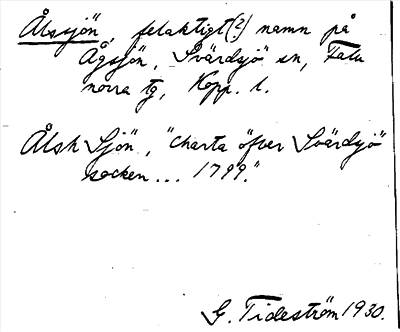 Ålssjön, felaktigt(?) namn på
Ågsjön, Svärdsjö sn, Falu
norra tg, Kopp. l.
Ålsk Sjön, "Charta öfver Svärdsjö
socken... 1799."
G. Tideström 1930.